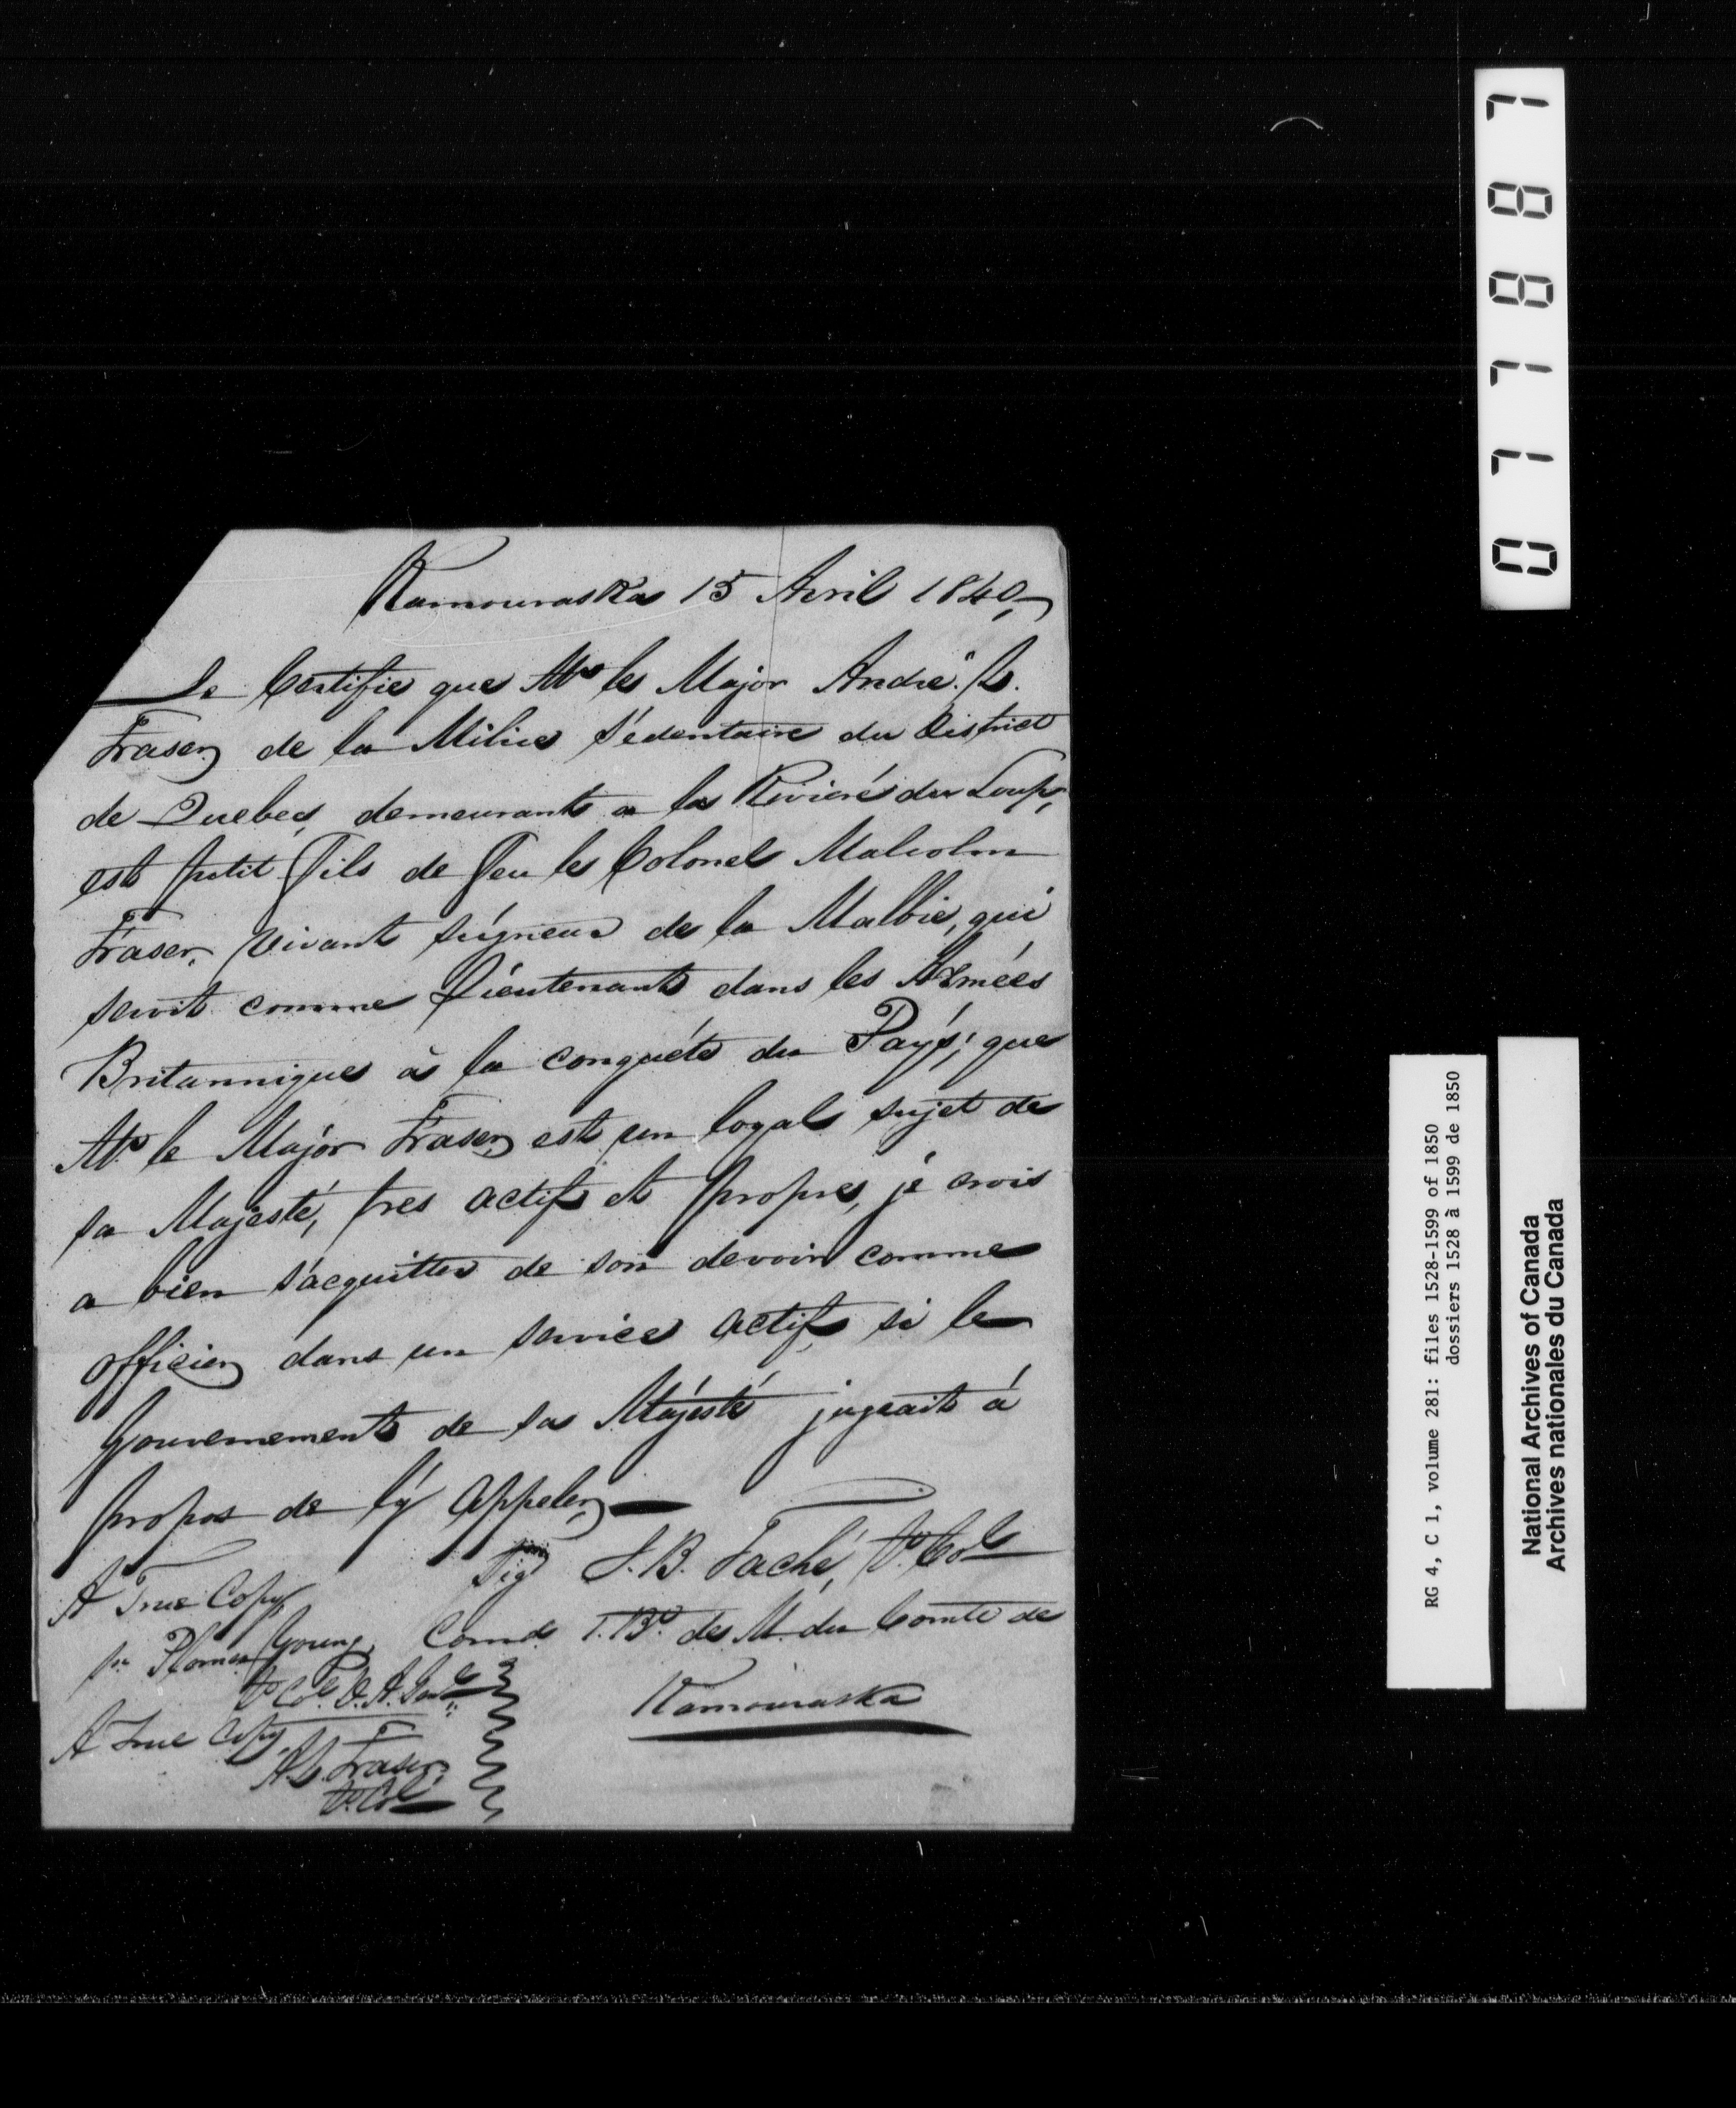 Kamouraska 15 Avril 1840,
Je Certifie que Mr le Major André. L.
Fraser, de la Milice Sédentaire du District
de Quebec, demeurant a la Riviére du Loup,
est petit Fils de Feu le Colonel Malcolm
Fraser, vivant seigneur de la Malbie, qui
servit comme Lieutenant dans les Armées
Britannique à la conquéte du Pays; que
Mr le Major Fraser, est un loyal sujet de
sa Majesté, tres actif et propre, je crois
a bien s'acquitter de son devoir comme
officier dans un service actif, si le
Gouvernement de sa Majesté jugeait á
propos de l'y appeler,—
Sigd J. B. Taché, Lt. Col
Comd. 1. Bn. de M. du Comté de
Kamouraska
A True Copy
Thomas Young,
Lt Col. D. A. Genl
A True Copy,
A. L. Fraser,
Lt. Col
077887
RG 4, C 1, volume 281: files 1528-1599 of 1850
dossiers 1528 à 1599 de 1850
National Archives of Canada
Archives nationales du Canada